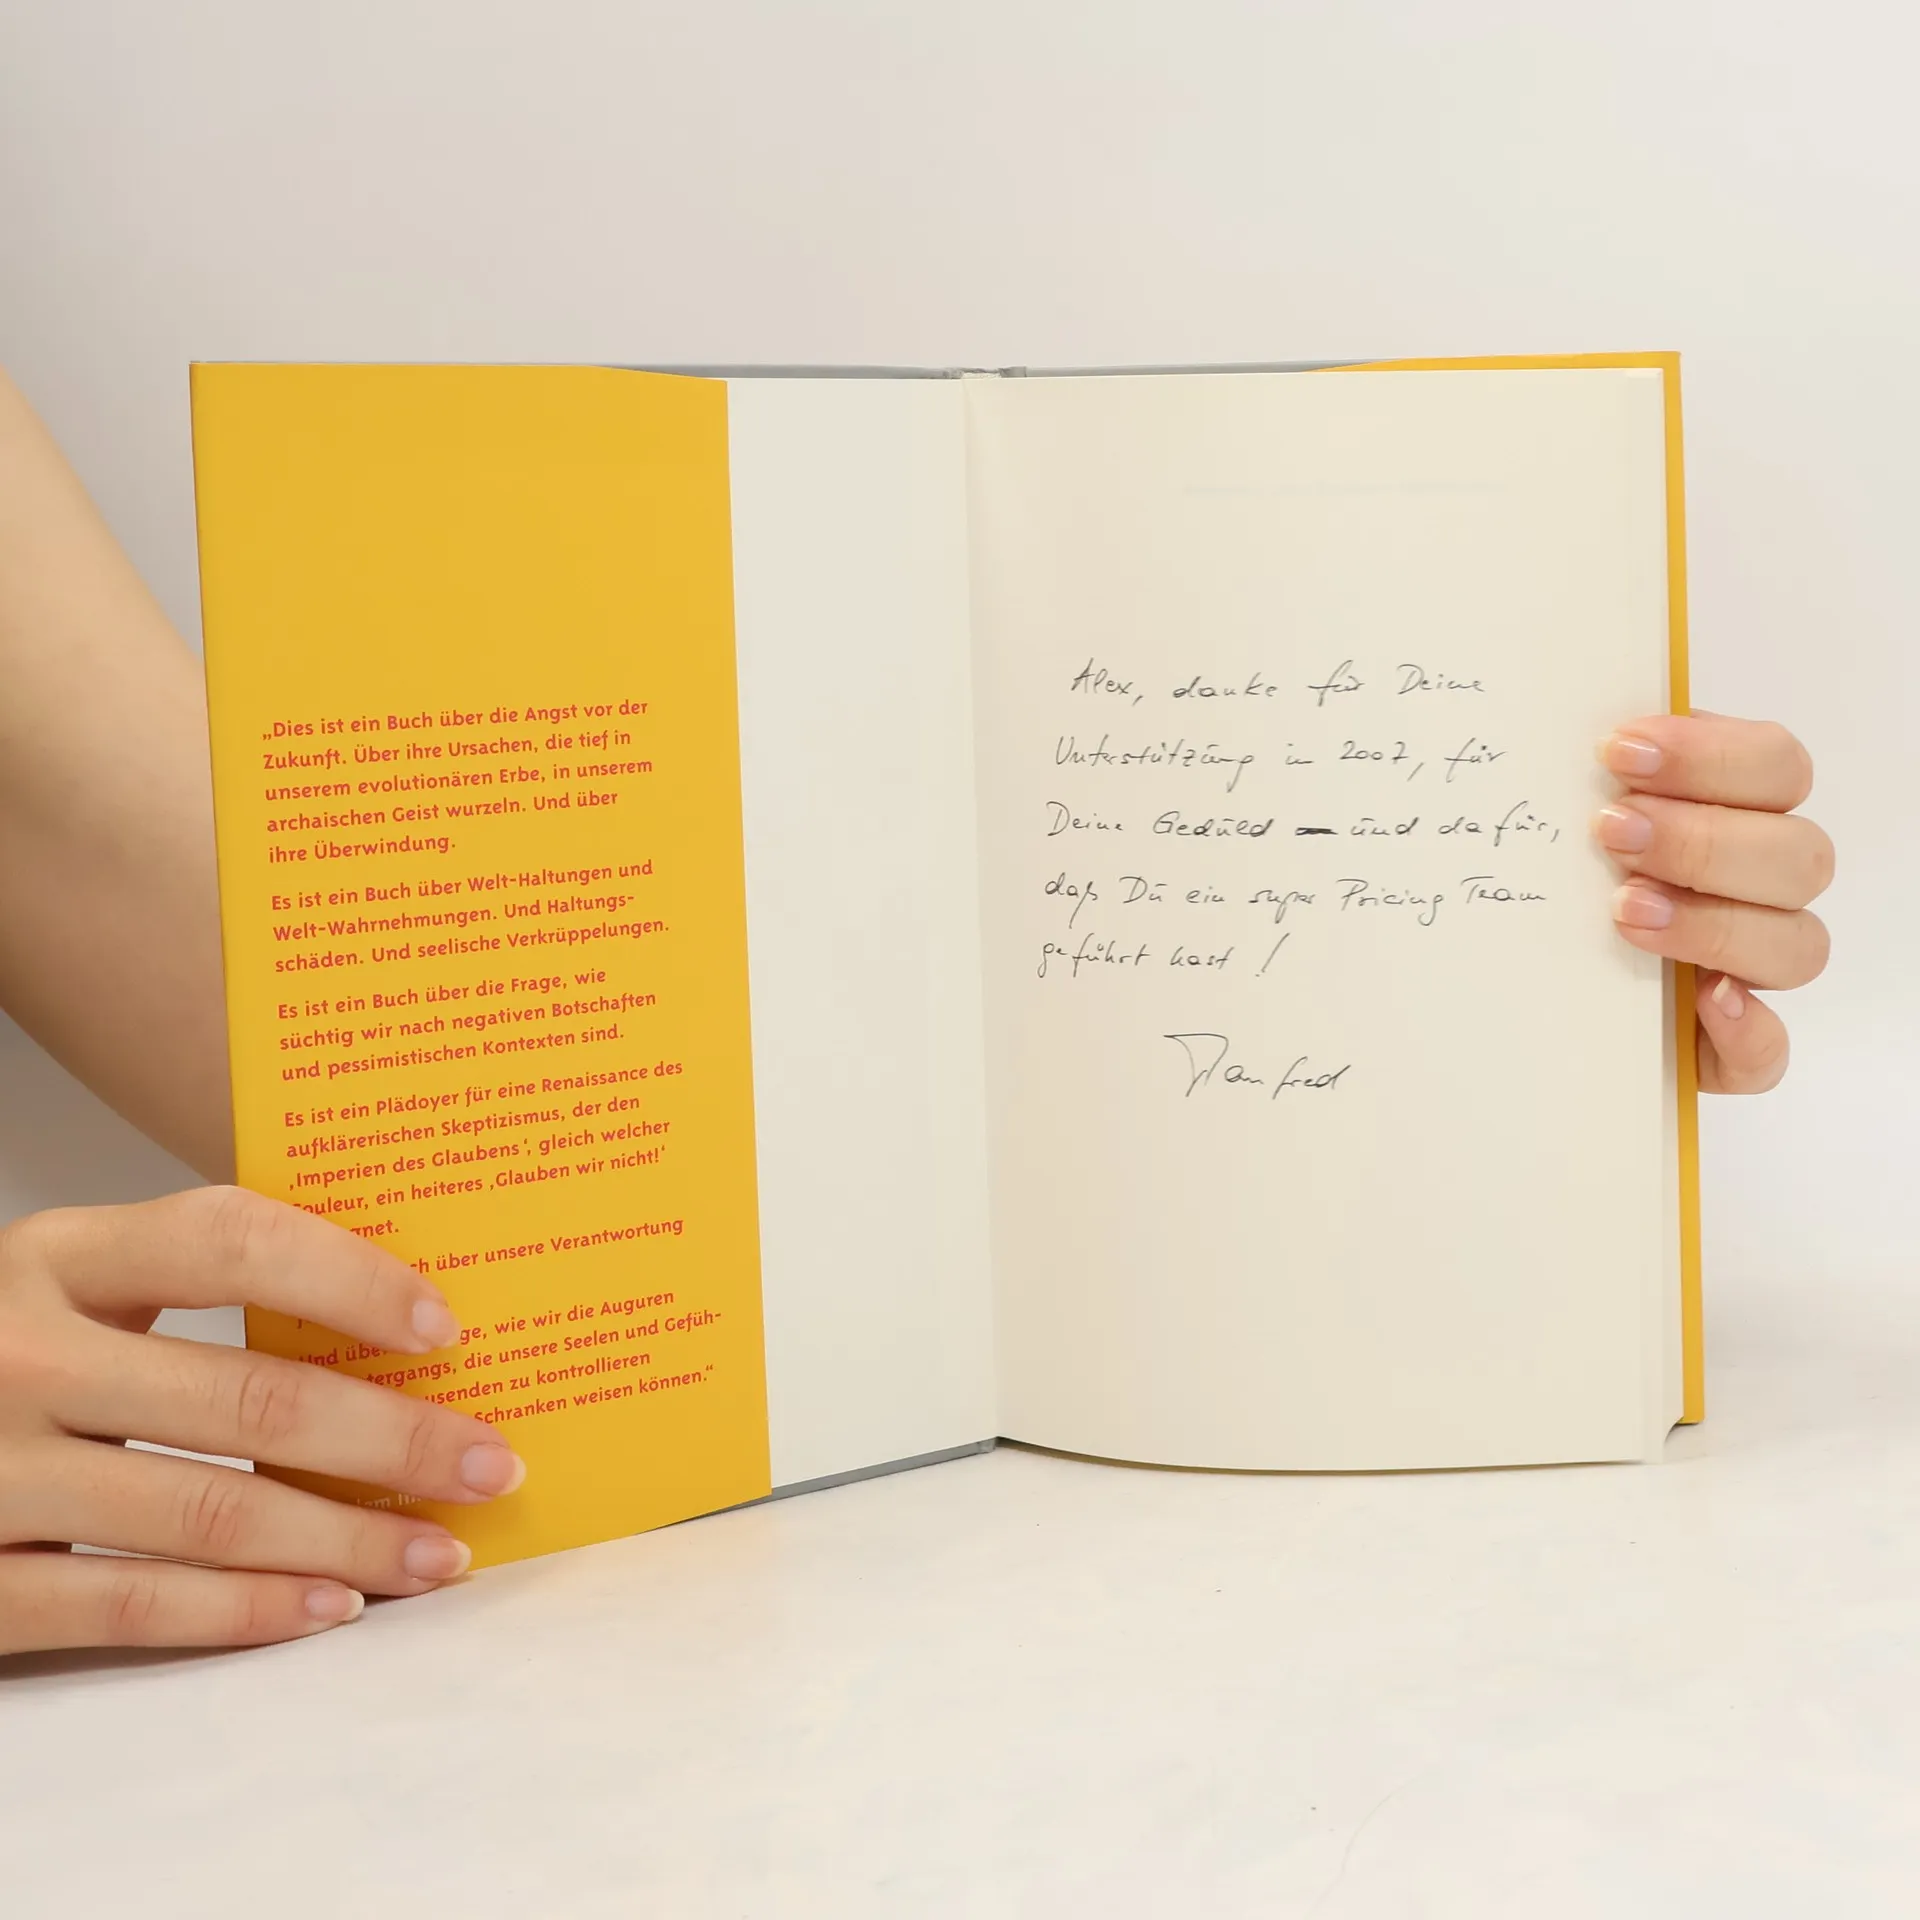 „Dies ist ein Buch über die Angst vor der
Zukunft. Über ihre Ursachen, die tief in
unserem evolutionären Erbe, in unserem
archaischen Geist wurzeln. Und über
ihre Überwindung.
Es ist ein Buch über Welt-Haltungen und
Welt-Wahrnehmungen. Und Haltungs-
schäden. Und seelische Verkrüppelungen.
Es ist ein Buch über die Frage, wie
süchtig wir nach negativen Botschaften
und pessimistischen Kontexten sind.
Es ist ein Plädoyer für eine Renaissance des
aufklärerischen Skeptizismus, der den
‚Imperien des Glaubens‘, gleich welcher
Couleur, ein heiteres ‚Glauben wir nicht!‘
über unsere Verantwortung
Und wie wir die Auguren
die unsere Seelen und Gefüh-
zu kontrollieren
Schranken weisen können.“
Alex, danke für Deine
Unterstützung in 2007, für
Deine Geduld und dafür,
daß Du ein super Pricing Team
geführt hast!
Manfred